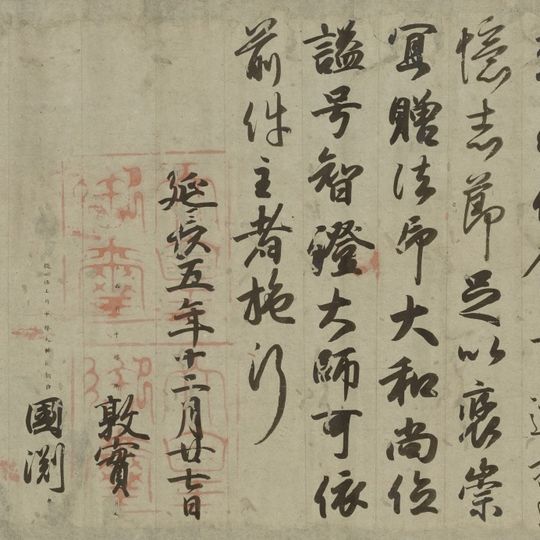 憶志節足以褒崇
冝贈法印大和尚位
諡号智證大師可依
前件主者施行
延長五年十二月廿七日
敦實
國淵